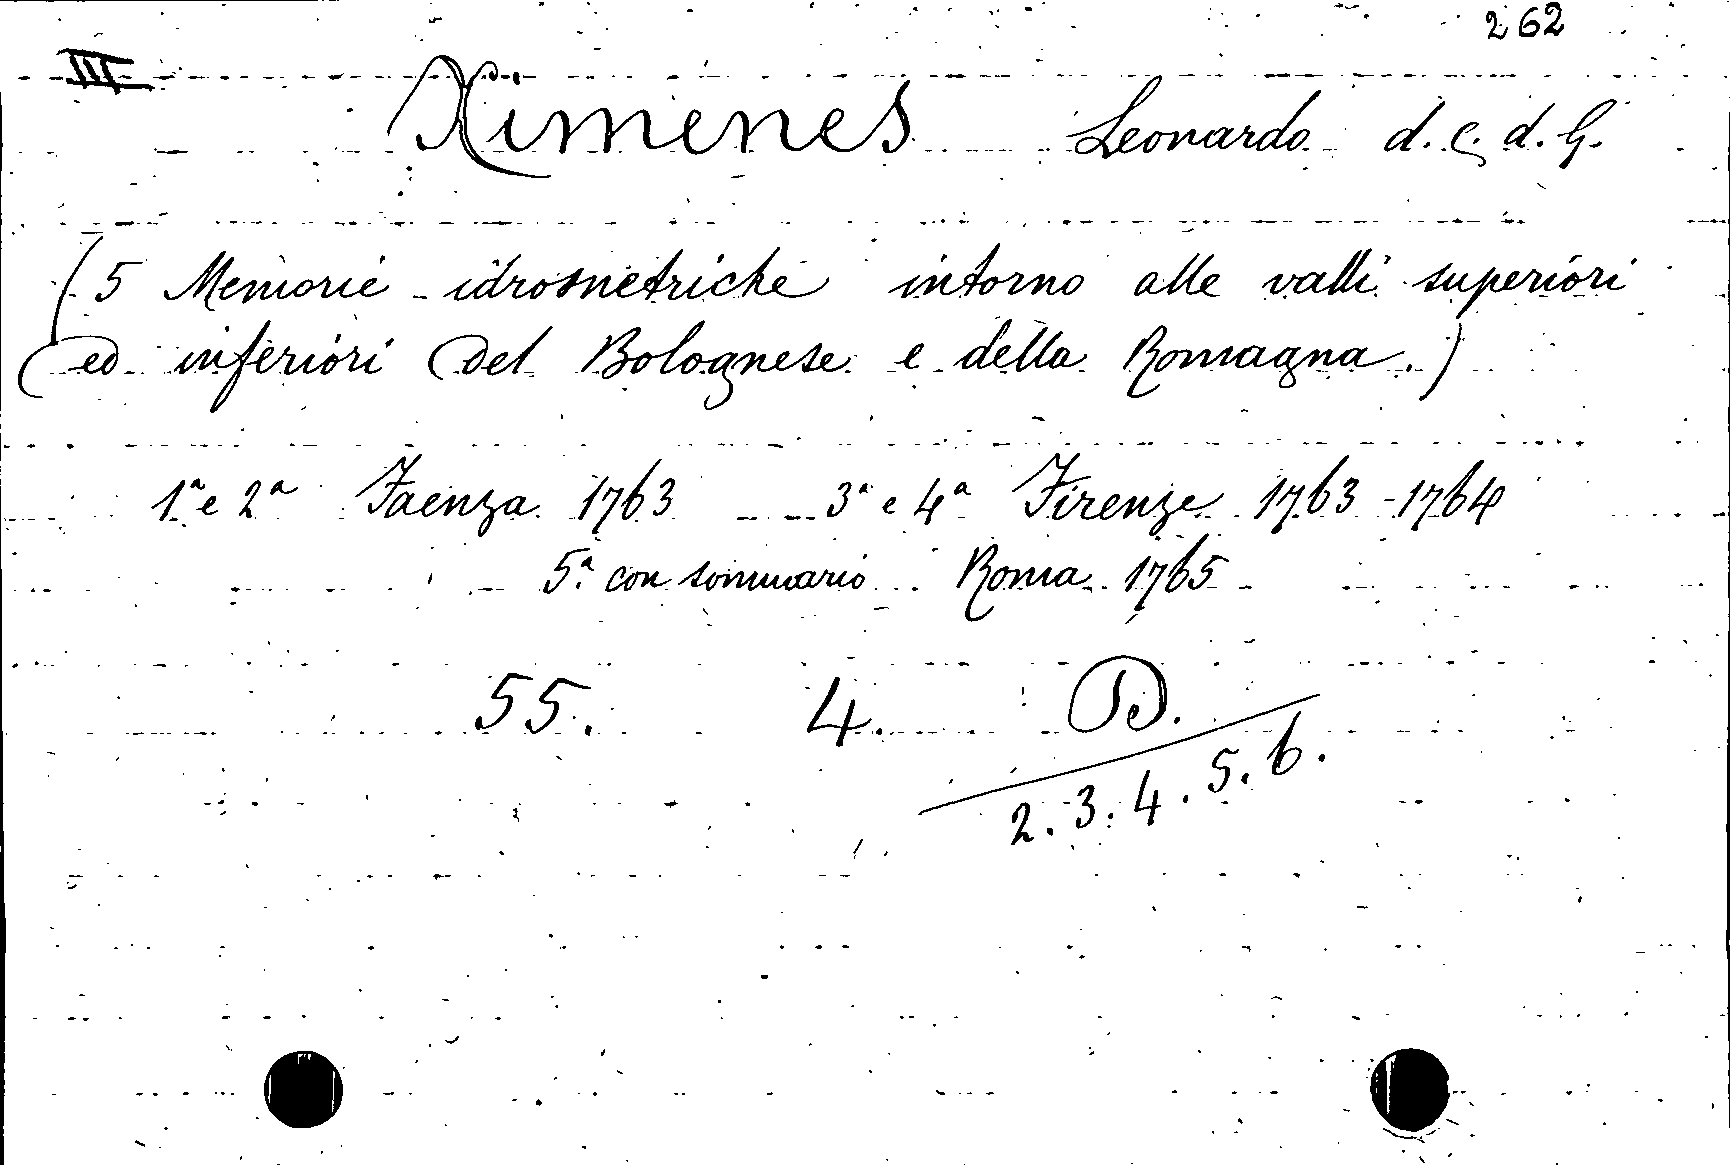 262
III
Ximenes Leonardo d. C. d. G.
(5 Memorie idrometriche intorno alle valli superiori
ed inferiori del Bolognese e della Romagna.)
1ª e 2ª Faenza 1763 3ª e 4ª Firenze 1763-1764
5ª con sommario Roma 1765
55. 4. D.
2. 3. 4. 5. 6.